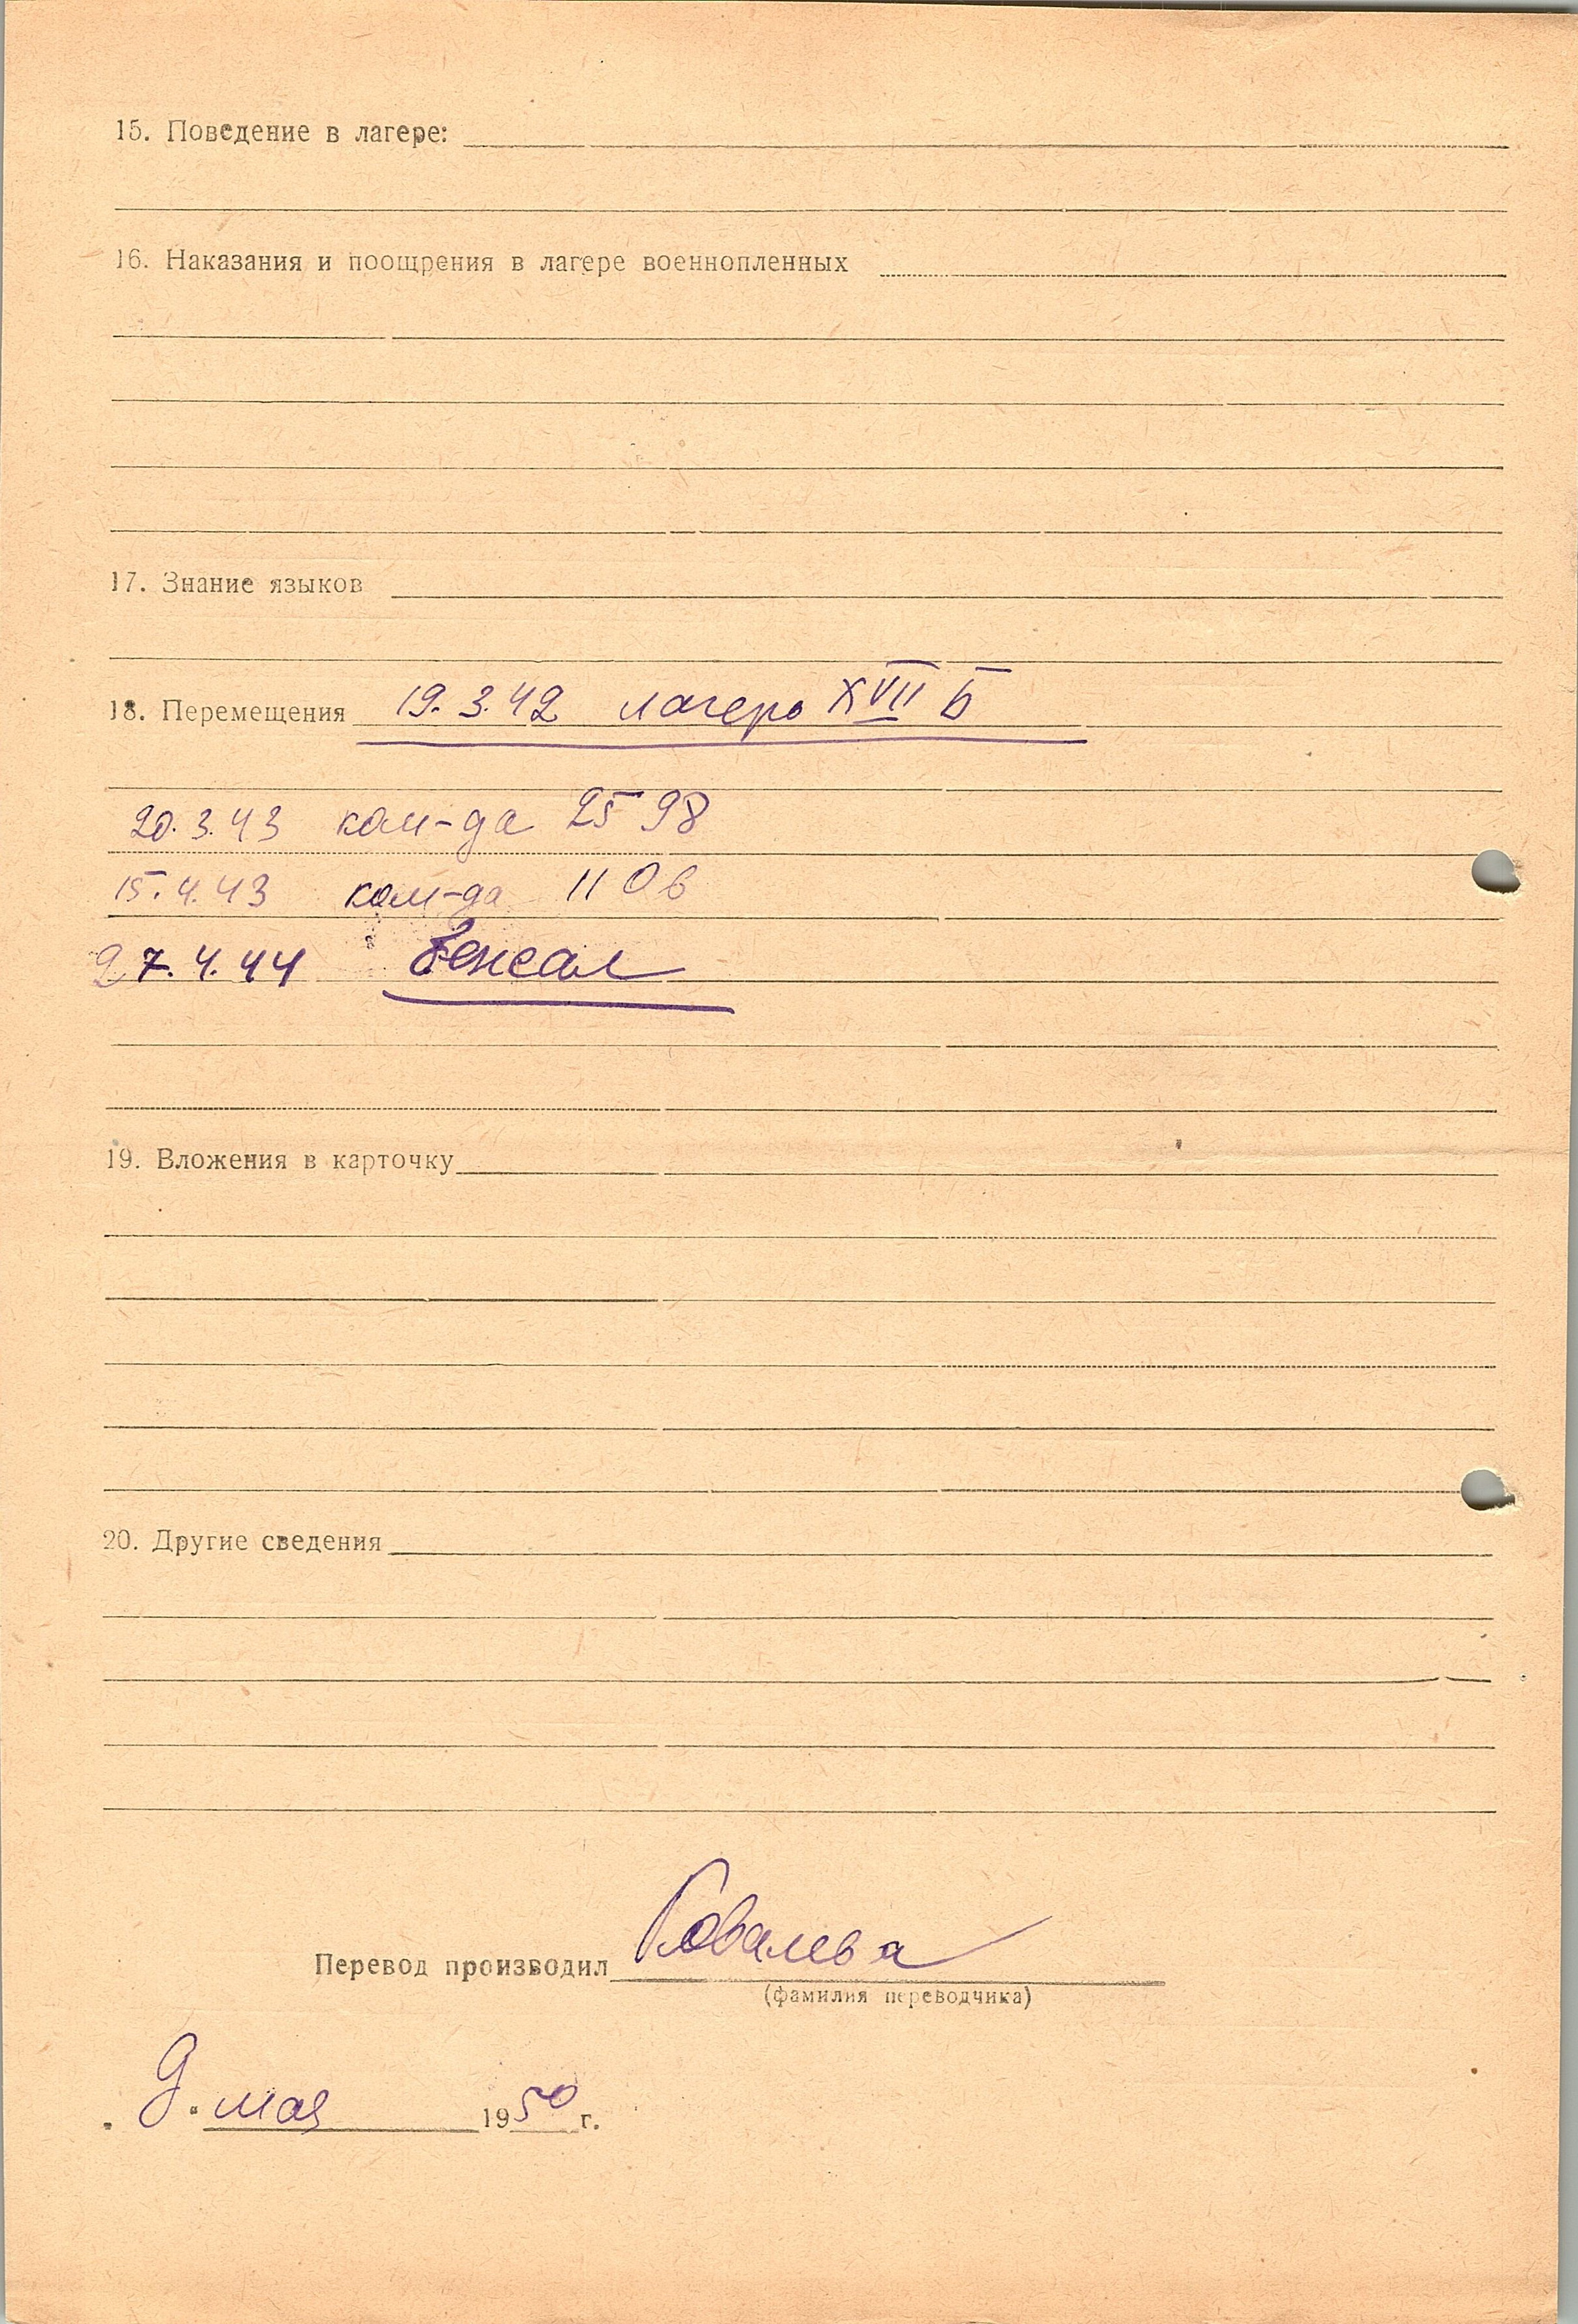 15. Поведение в лагере:
16. Наказания и поощрения в лагере военнопленных
17. Знание языков
18. Перемещения 19.3.42 лагерь XVII Б
20.3.43 ком-да 2598
15.4.43 ком-да 110в
27.4.44
19. Вложения в карточку
20. Другие сведения
Перевод производил Ковалева
(фамилия переводчика)
„9" мая 1950 г.